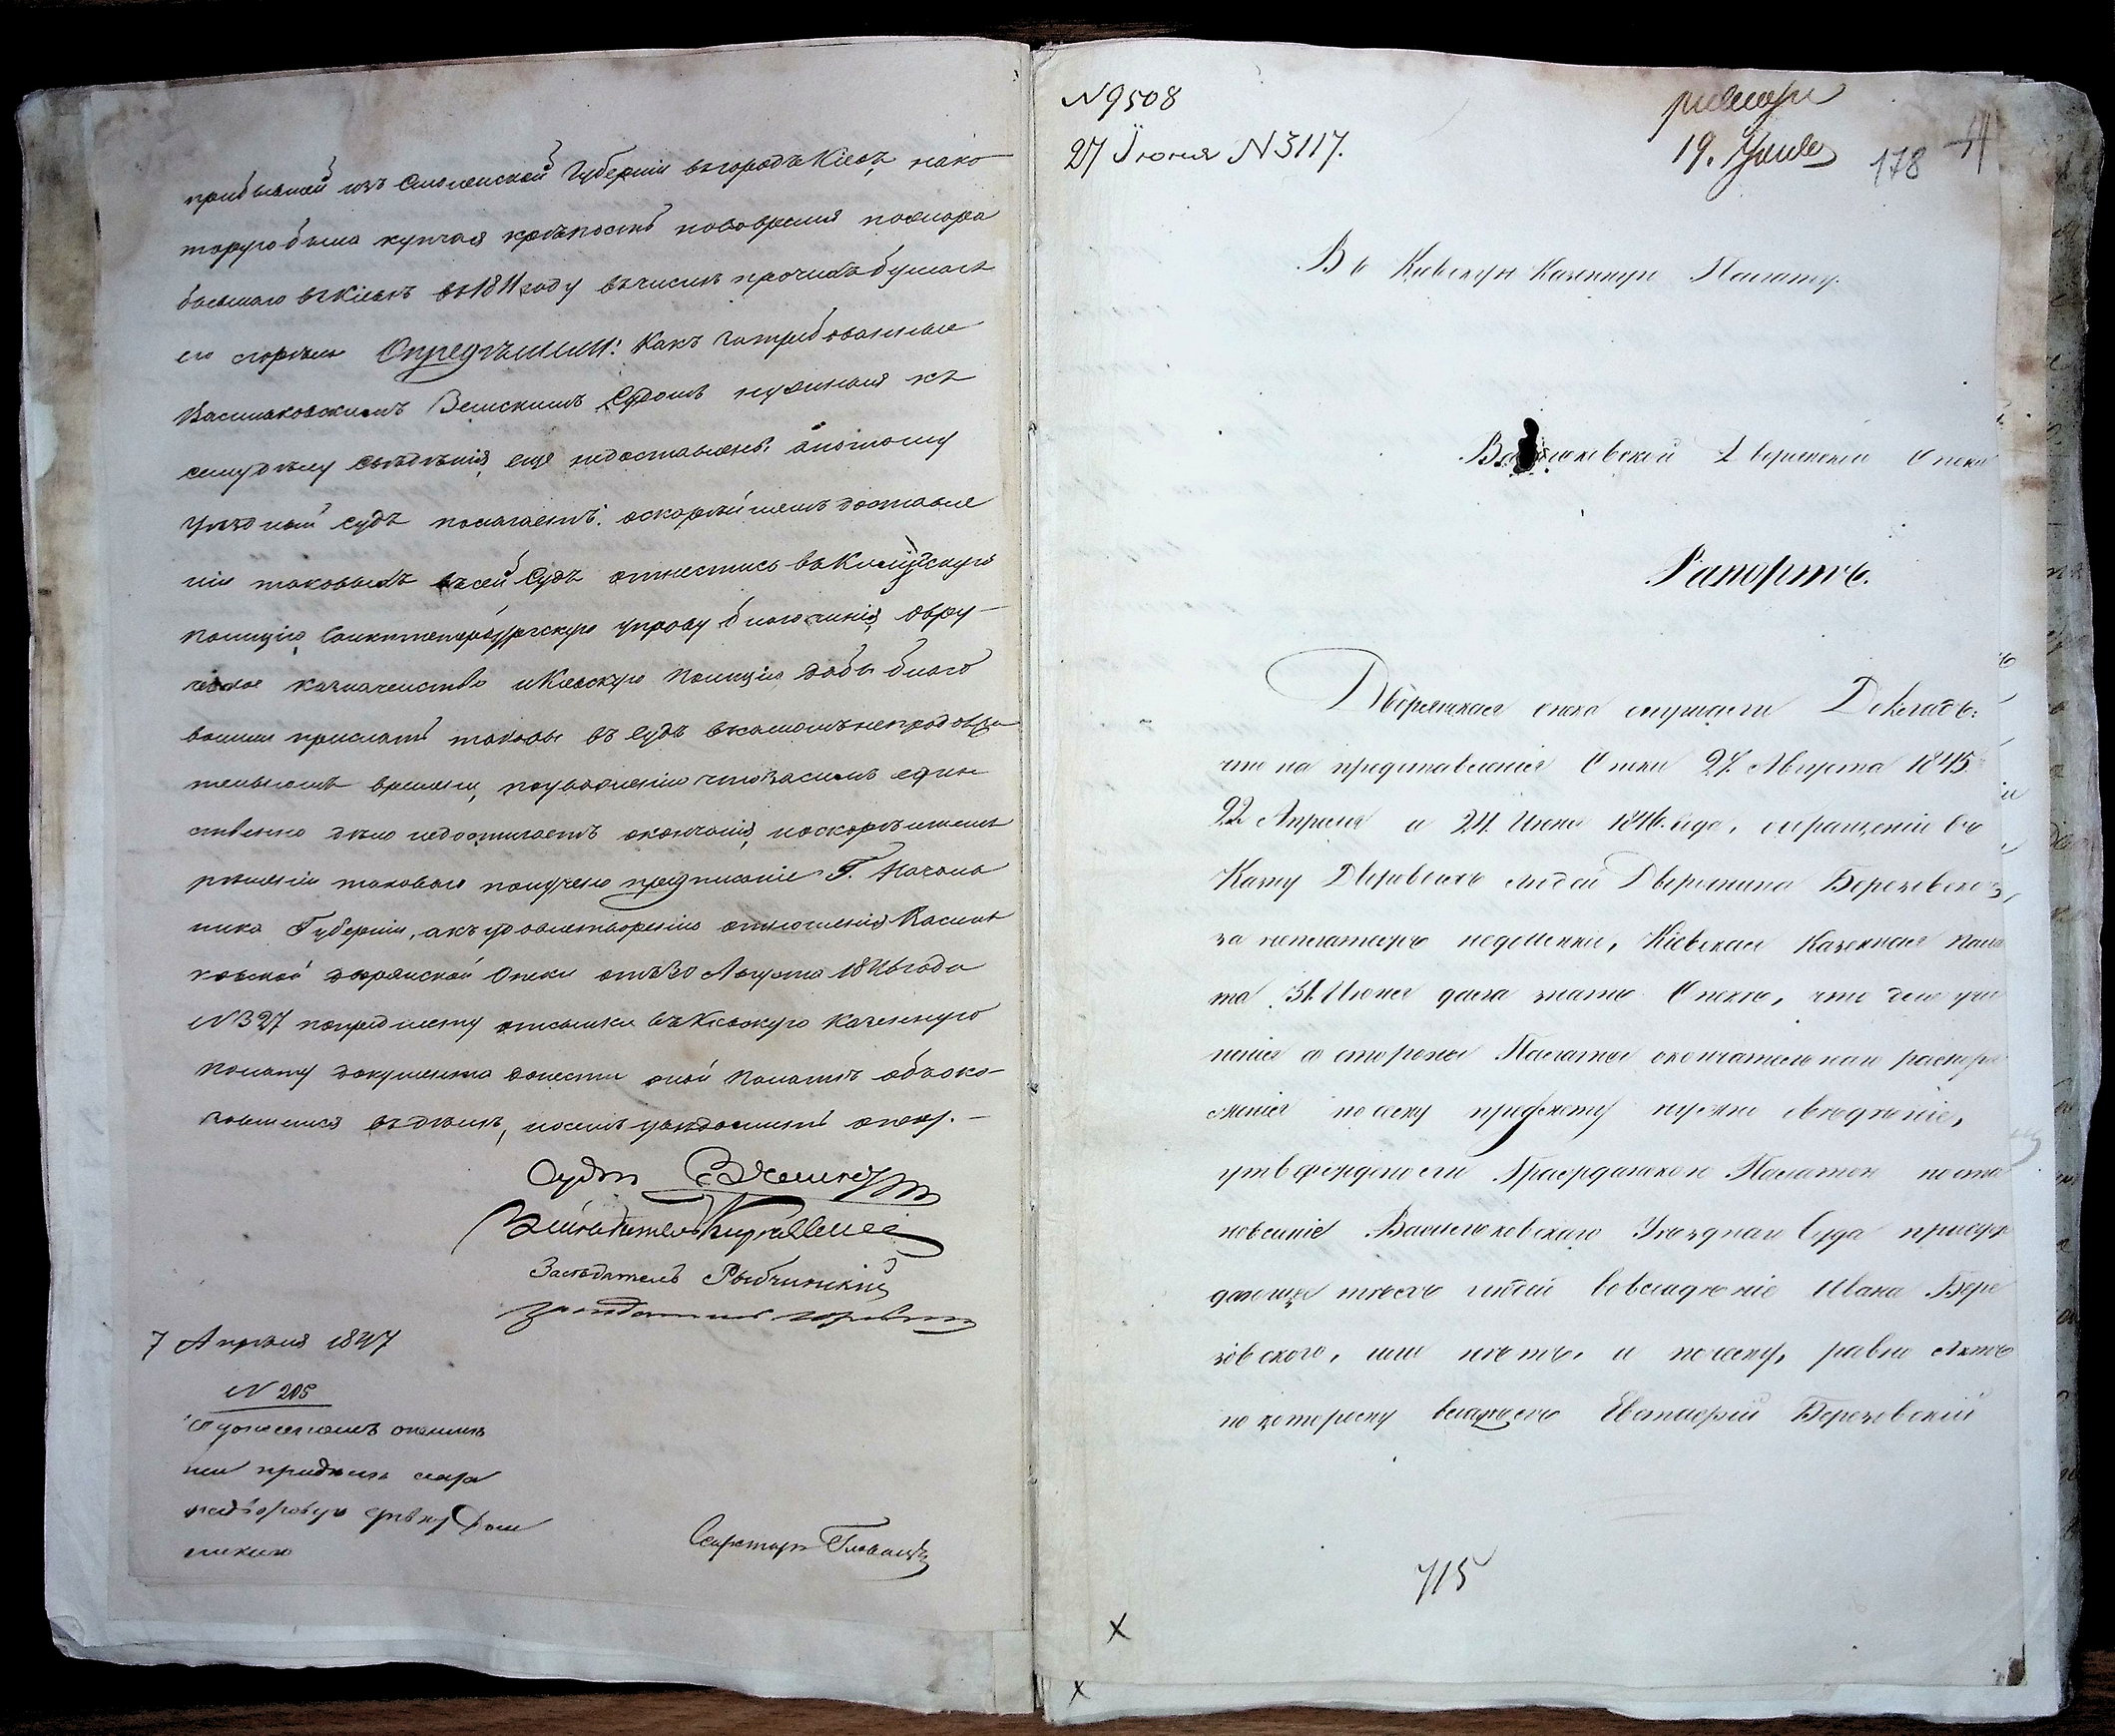 прибывшей изъ Смоленской Губерніи въ городъ Кіевъ, нако
торую была купчая крѣпость пововремя пожара
бывшаго въ Кіевѣ въ 1811 году въчислѣ прочихъ бумагъ
его сгорѣла Опредѣлили: Какъ затребованные
Васильковскимъ Земскимъ Судомъ нужныя къ
сему дѣлу свѣдѣнія, еще недоставлены. апотому
Уѣздный Судъ полагаетъ: оскорѣйшемъ доставле
ніи таковыхъ въсей Судъ отнестись въ
Полицію, Санктпетербургскую управу благочинія, Овру-
чское казначейство иКіевскую Полицію дабы благо
волили прислать таковы въ Судъ всамомъ непродолжи
тельномъ времени, поуваженію что засимъ един
ственно дѣло недостигаетъ окончанія, наскорѣйшемъ
рѣшеніи таковаго получено предписаніе Г. Началь
ника Губерніи, акъ удовлетворенію отношенія Василь
ковской дворянской Опеки отъ 20 Августа 1846 года
N 327 попредмету отсылки въ Кіевскую Казенную
Палату документа донести оной Палатѣ объока-
завшемся въдѣлѣ, исемъ увѣдомить опеку.-
Судья
Засѣдатель
Засѣдатель Рыбчинскій
7 Апрѣля 1847
N 205
Секретарь
N 9508
27 Іюня N 3117.
19. Іюня
178
Въ Кіевскую Казенную Палату.
Васильковской Дворянской Опеки
Рапортъ.
Дворянская опека слушали Докладъ:
что на представленія Опеки 27. Августа 1845.
22 Апреля и 24. Июня 1846. года, обращеніи въ
Казну Дворовыхъ людей Дворянина Березовскаго,
за неплатежъ недоимки, Кіевская Казенная Пала
та 31. Июля дала знать Опекѣ, что для учи
ненія со стороны Палаты окончательнаго распоря
женія по сему предмету нужно свѣдѣніе,
утвержденоли Гражданскою Палатою поста
новленіе Васильковскаго Уѣзднаго Суда присуж
дающее тѣхъ людей вовладѣніе Ивана Бере
зовскаго, или нѣтъ, и посему, равно Актъ
по которому владѣетъ Евстафій Березовскій
715
х
х